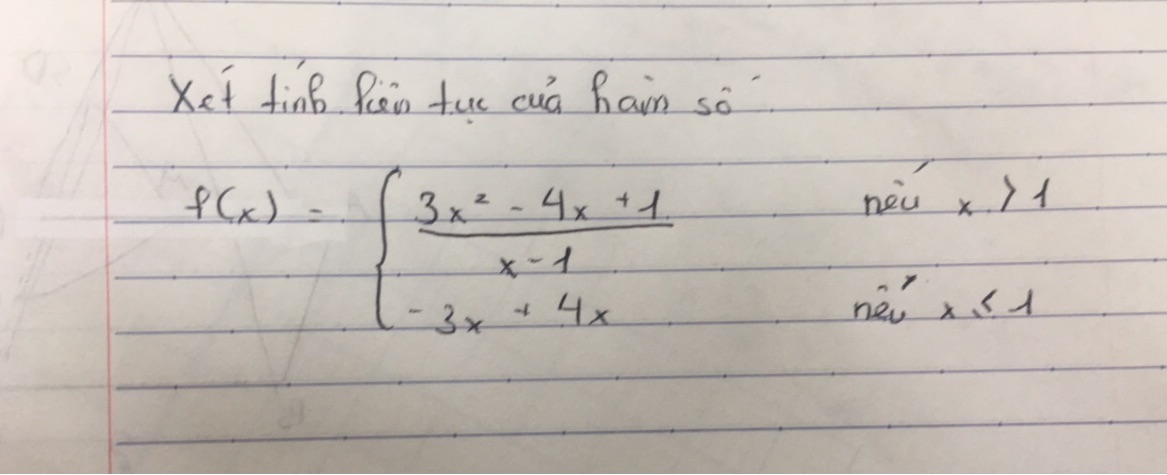 Xét tính liên tục của hàm số
f(x) = { 3x² - 4x + 1 nếu x > 1
x - 1
- 3x + 4x nếu x ≤ 1